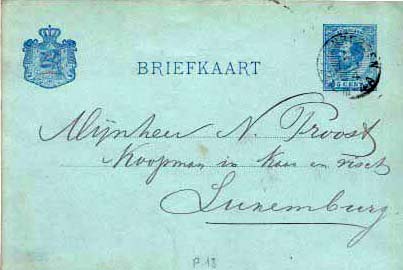 BRIEFKAART
5 CENT
Mijnheer N. Proost
Koopman in Kaas en visch
Luxemburg
P 13